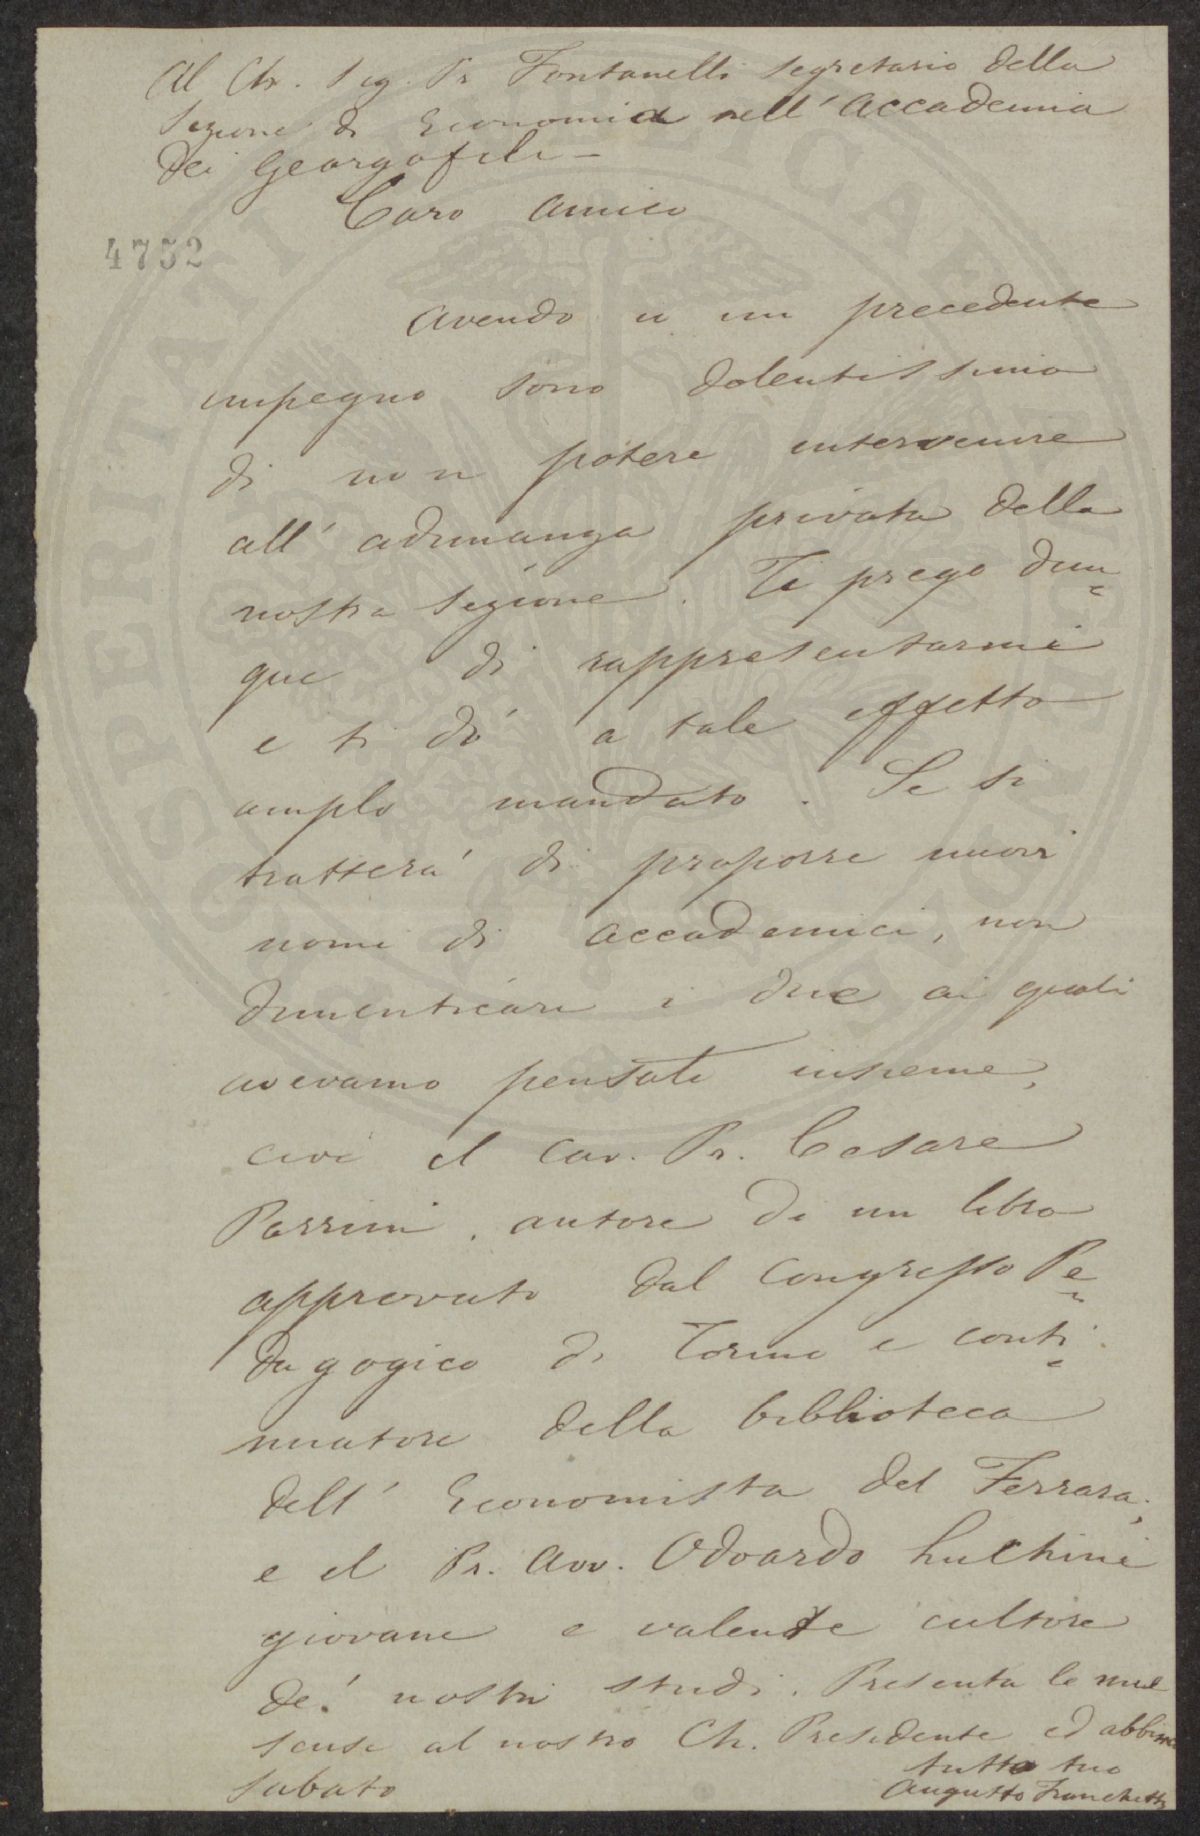 Al Ch. Sig. Pr Fontanelli Segretario della
Sezione di Economia nell'Accademia
dei Georgofili –
Caro Amico
4752
Avendo un precedente
impegno sono dolentissimo
di non potere intervenire
all'adunanza privata della
nostra sezione. Ti prego dun=
que di rappresentarmi
e ti dò a tale effetto
amplo mandato. Se si
tratterà di proporre nuovi
nomi di Accademici, non
dimenticare i due ai quali
avevamo pensato insieme,
cioè il Cav. Pr. Cesare
Parrini, autore di un libro
approvato dal Congresso Pe=
dagogico di Torino e conti=
nuatore della biblioteca
dell'Economista del Ferrara;
e il Pr. Avv. Odoardo Luchini
giovane e valente cultore
de' nostri studi. Presenta le mie
scuse al nostro Ch. Presidente ed abbimi
tutto tuo
Sabato
Augusto Franchetti